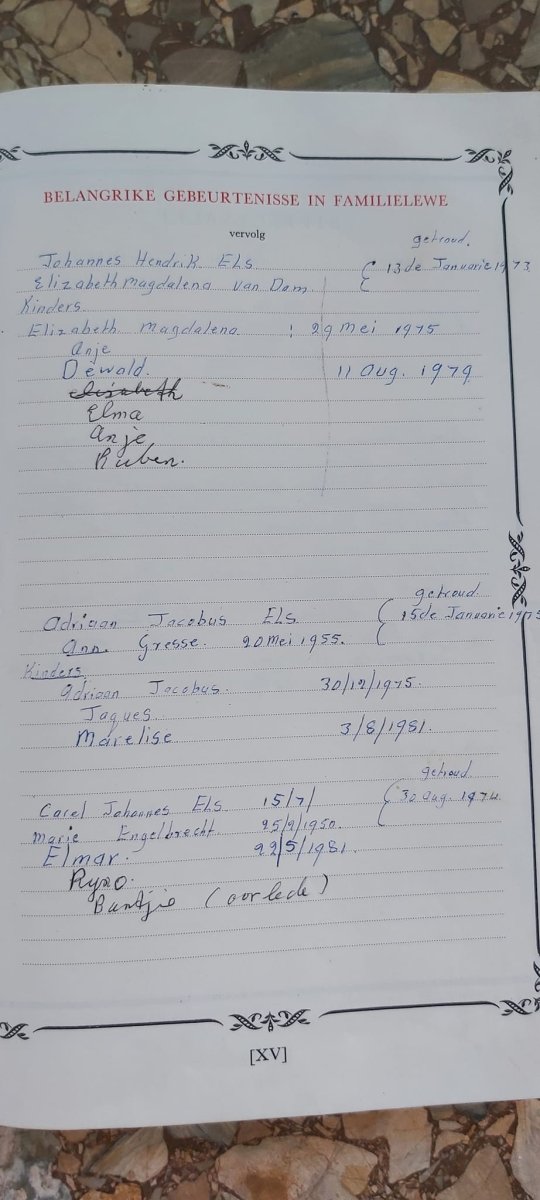 BELANGRIKE GEBEURTENISSE IN FAMILIELEWE
vervolg
getroud.
Johannes Hendrik ELS { 13de Januarie 1973
Elizabeth Magdalena van Dam.
Kinders.
Elizabeth Magdalena : 29 Mei 1975
Anje
Dewald. 11 Aug. 1979
Elizabeth
Elma
Anje
Ruben.
getroud
Adriaan Jacobus ELS { 15de Januarie 1975
Ann. Gresse. 20 Mei 1955.
Kinders.
Adriaan Jacobus. 30/12/1975.
Jaques
Marelise 3/8/1981.
getroud
Carel Johannes ELS 15/7/ { 30 Aug. 1974
Marie Engelbrecht 25/9/1950.
Elmar. 22/5/1981.
Ryno.
Bantjie (oorlede)
[XV]